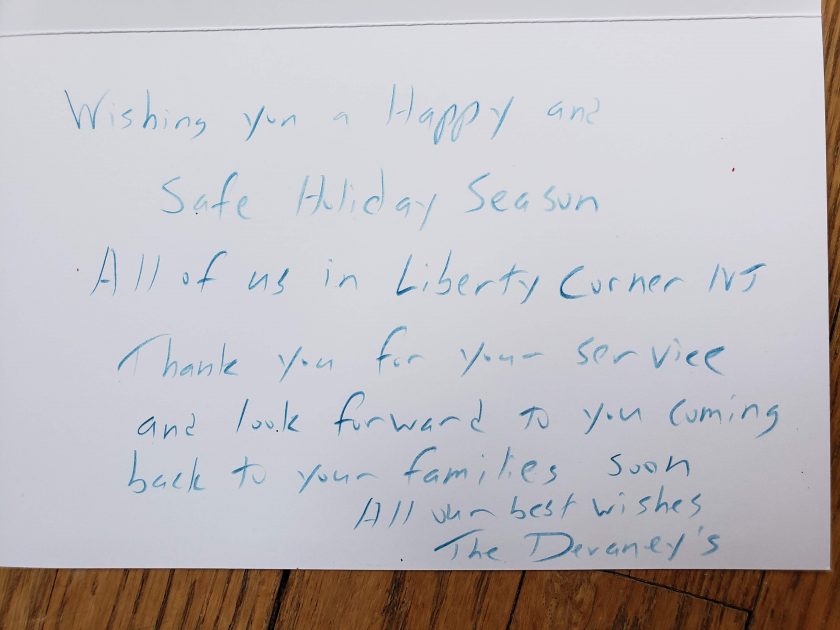 Wishing you a Happy and
Safe Holiday Season
All of us in Liberty Corner NJ
Thank you for your service
and look forward to you coming
back to your families soon
All our best wishes
The Devaney's